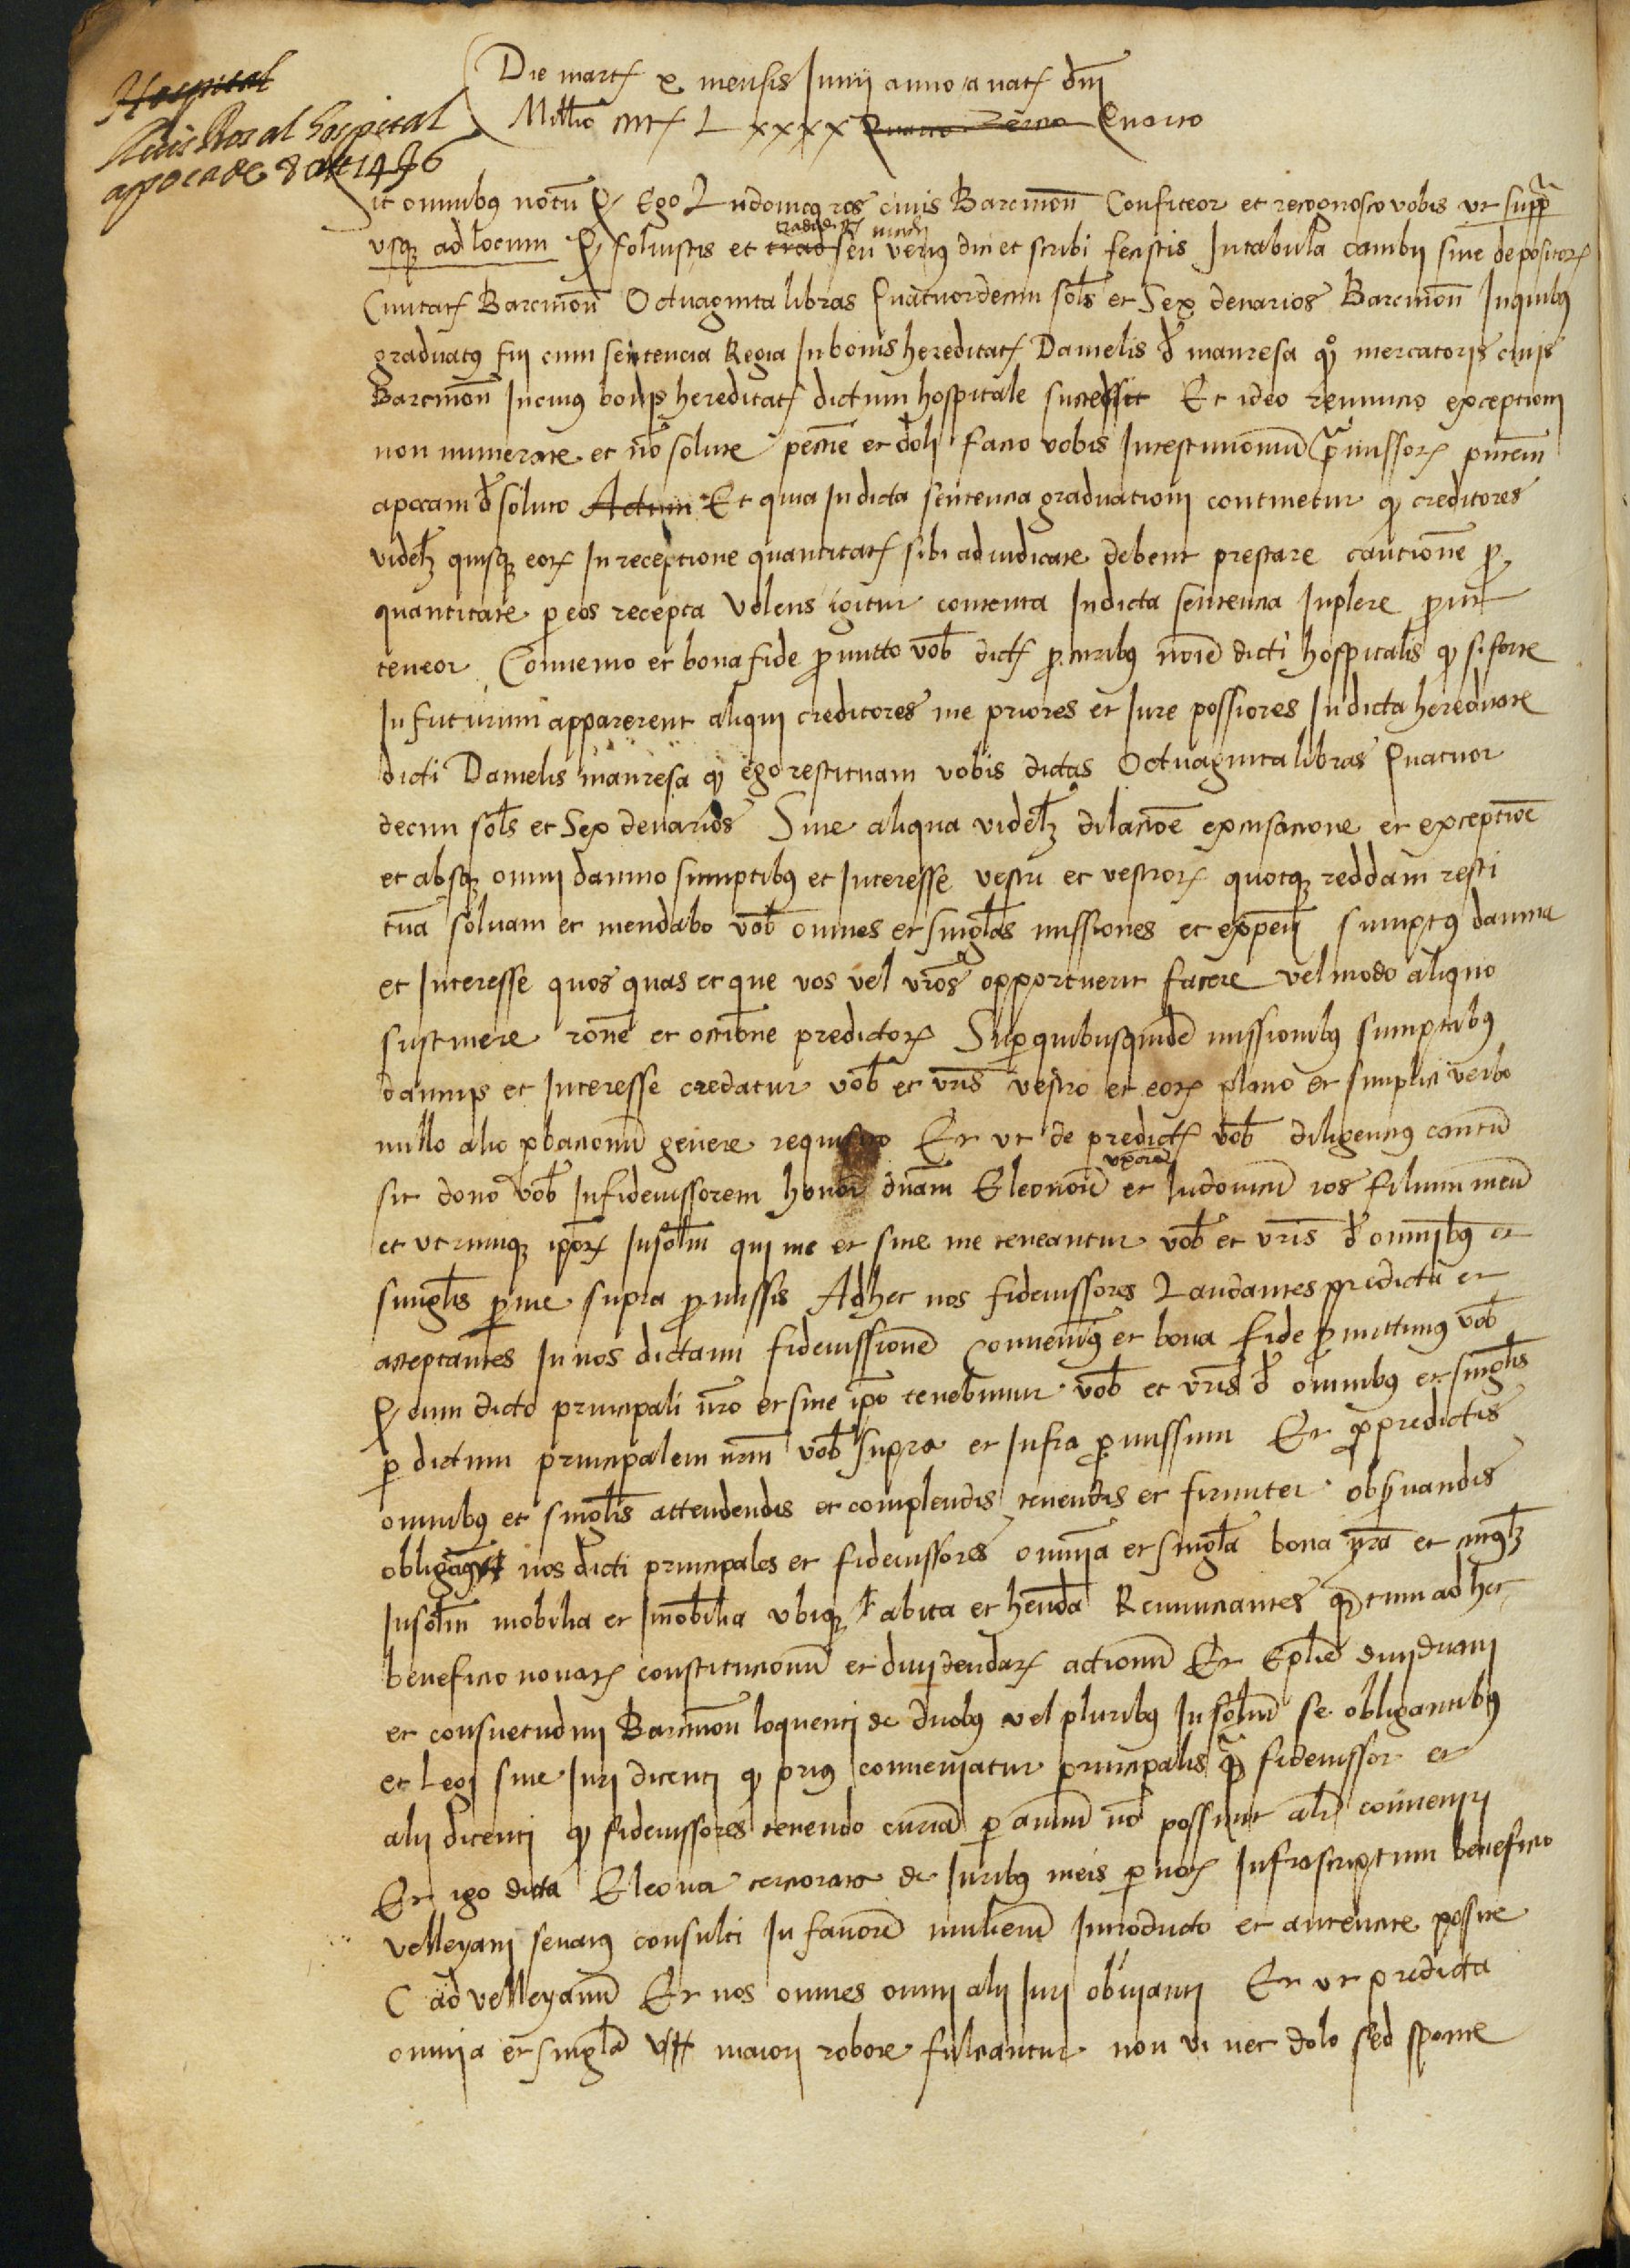 Hospital
Luis Ros al hospital
apoca de 8 
Die martꝭ x mensis Junii anno a natꝭ dñi
Millº CCCCꝭ L xxxx Quarto Tercio Quarto
Sit omnibꝰ notũ ꝙ Ego Ludovicꝰ ros civis Barcinoñ Confiteor et recognosco vobis ut supᵃ
usqꝫ ad locum ꝙ solvistis et trad seu veriꝰ dici et scribi fecistis In tabula cambii sive depositorꝝ
Civitatꝭ Barcinoñ Octuaginta libras Quatuordecim solˢ et Sex denarios Barcinoñ In quibꝰ
graduatꝰ fui cum sentencia Regia In bonis hereditatꝭ Danielis đ manresa qº mercatoris civis
Barcinoñ In cuiꝰ bonis hereditatꝭ dictum hospitale successit Et ideo renuncio exceptioni
non numerate et nõ solute peccũie et doli facio vobis In testimoniũ p̃missorꝝ pñtem
apocam đ soluto Actum Et quia In dicta sentencia graduationi continetur ꝙ creditores
videlꝫ quisqꝫ eorꝝ In receptione quantitatꝭ sibi adiudicate debent prestare cautionẽ ꝓ
quantitate p eos recepta Volens igitur contenta In dicta sentencia Inplere prout
teneor Convenio et bona fide ꝓmitto vob̃ dictꝭ ꝓcuribꝰ noĩe dicti hospitalis ꝙ si forte
In futurum apparerent aliqui creditores me priores et Jure possiores In dicta hereditate
dicti Danielis manresa ꝙ ego restituam vobis dictas Octuaginta libras Quatuor
decim solˢ et Sex denarios Sine aliqua videlꝫ dilacioẽ excusacione et exceptioẽ
et absqꝫ omni damno sumptibꝰ et Interesse vestri et vestrorꝝ quoqꝫ reddam resti
tuã solvam et mendabo vob̃ omnes et singlãs missiones et expeñ sumptꝰ damna
et Interesse quos quas et que vos vel vr̃os opportuerit facere vel modo aliquo
sustinere rõne et occiõne predictorꝝ Super quibusquidẽ missionibꝰ sumptibꝰ
damnis et Interesse credatur vob̃ et vr̃is vestro et eorꝝ plano et simplici verbo
nullo alio ꝓbacionũ genere requisito Et ut de predictꝭ vob̃ diligenciꝰ cautũ
uxorẽ
sit dono vob̃ In fidemissorem honor dñam Eleonorã et ludovicũ ros filium meũ
et utrumqꝫ ipõrꝝ Insolĩm qui mc et sine me teneantur vob̃ et vr̃is đ omnibꝰ et
singlĩs p me supra ꝓmissis Ad hec nos fideiussores Laudantes predicta et
acceptantes In nos dictam fideiussionẽ Convenimꝰ et bona fide ꝓmittimꝰ vob̃
ꝙ cum dicto principali nr̃o et sine ipõ tenebimur vob̃ et vr̃is đ omnibꝰ et singlĩs
p dictum principalem nr̃m vob̃ supra et Infra ꝓmissum Et ꝓ predictis
omnibꝰ et singlĩs attendendis et complendis tenendis et firmiter obsꝑvandis
obligamꝰ nos dicti principales et fideiussores omnia et singlã bona nr̃a et cuiuslꝫ
Insolĩm mobilia et Imobilia ubiqꝫ habita et hẽnda Renunciantes quantum ad hec
beneficio novarꝝ constitucionũ et dividendarꝝ actionũ Et Epl̃e divi Adriani
et consuetudini Barcinoñ loquenti de duobꝰ vel pluribꝰ Insolĩdũ se obligantibꝰ
et Legi sive Juri dicenti ꝙ priꝰ conveniatur principalis q̃m fideiussor et
alii dicenti ꝙ fideiussores tenendo curiã p annũ nõ possint alr̃ conveniri
Et ego dicta Eleonor cerciorata de Juribꝰ meis p noꝝ Infrascriptum beneficio
velleyani senatꝰ consulti In favorẽ mulierũ Introducto et autentice posite
C ad velleyanũ Et nos omnes omni alii Juri obvianti Et ut predicta
omnia et singlã maiori robore fulciantur non vi nec dolo sed sponte